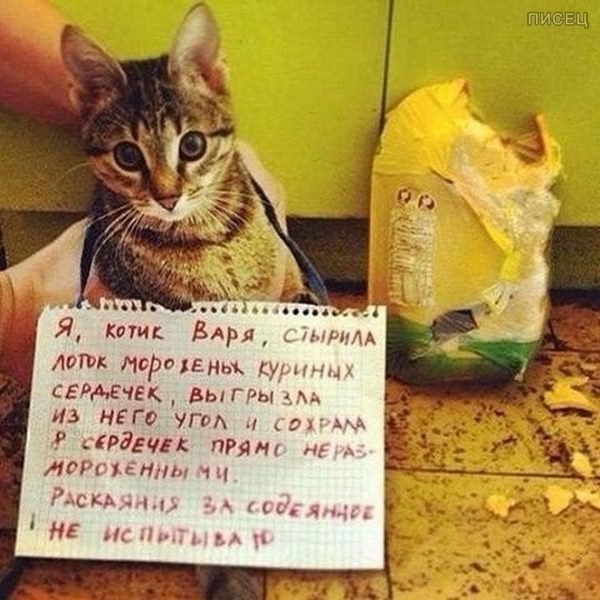 ПИСЕЦ
Я, котик Варя, стырила
лоток мороженых куриных
сердечек, выгрызла
из него угол и сохрала
8 сердечек прямо нераз-
мороженными.
Раскаяния за содеянное
не испытываю